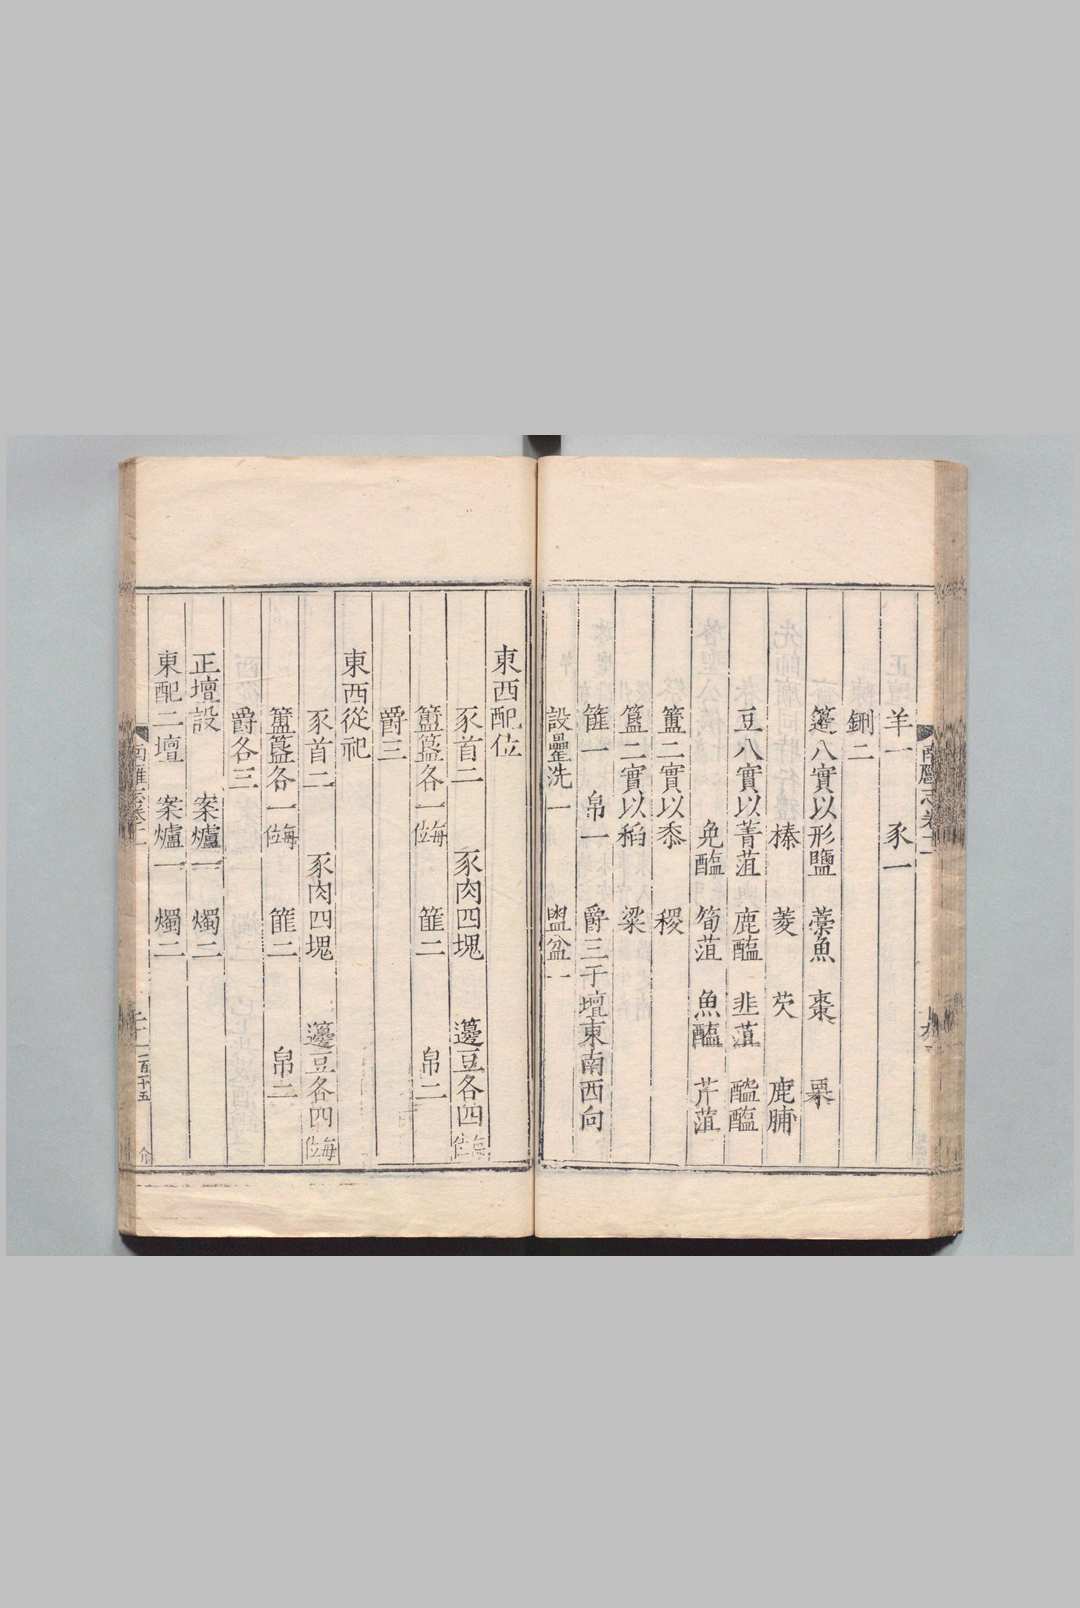 羊一 豕一
鉶二
籩八實以形鹽 藁魚 棗 栗
榛 菱 芡 鹿脯
豆八實以菁菹 鹿醢 韭菹 醓醢
兔醢 筍菹 魚醢 芹菹
簠二實以黍 稷
簋二實以稻 粱
篚一 帛一 爵三于壇東南西向
設罍洗一 盥盆一
東西配位
豕首二 豕肉四塊 籩豆各四每位
簠簋各一每位 篚二 帛二
爵三
東西從祀
豕首二 豕肉四塊 籩豆各四每位
簠簋各一每位 篚二 帛二
爵各三
正壇設 案爐一 燭二
東配二壇 案爐一 燭二